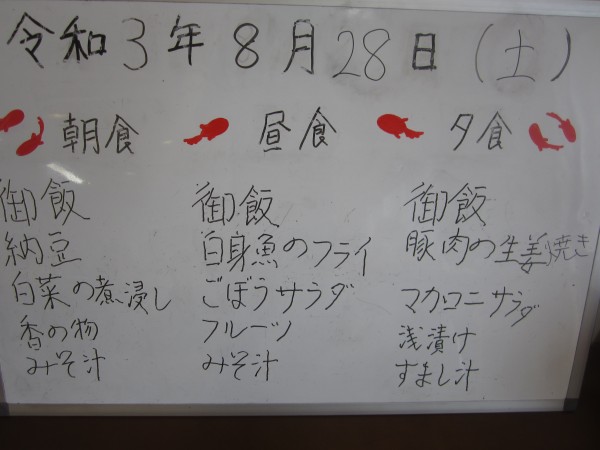 令和3年8月28日(土)
朝食
御飯
納豆
白菜の煮浸し
香の物
みそ汁
昼食
御飯
白身魚のフライ
ごぼうサラダ
フルーツ
みそ汁
夕食
御飯
豚肉の生姜焼き
マカロニサラダ
浅漬け
すまし汁